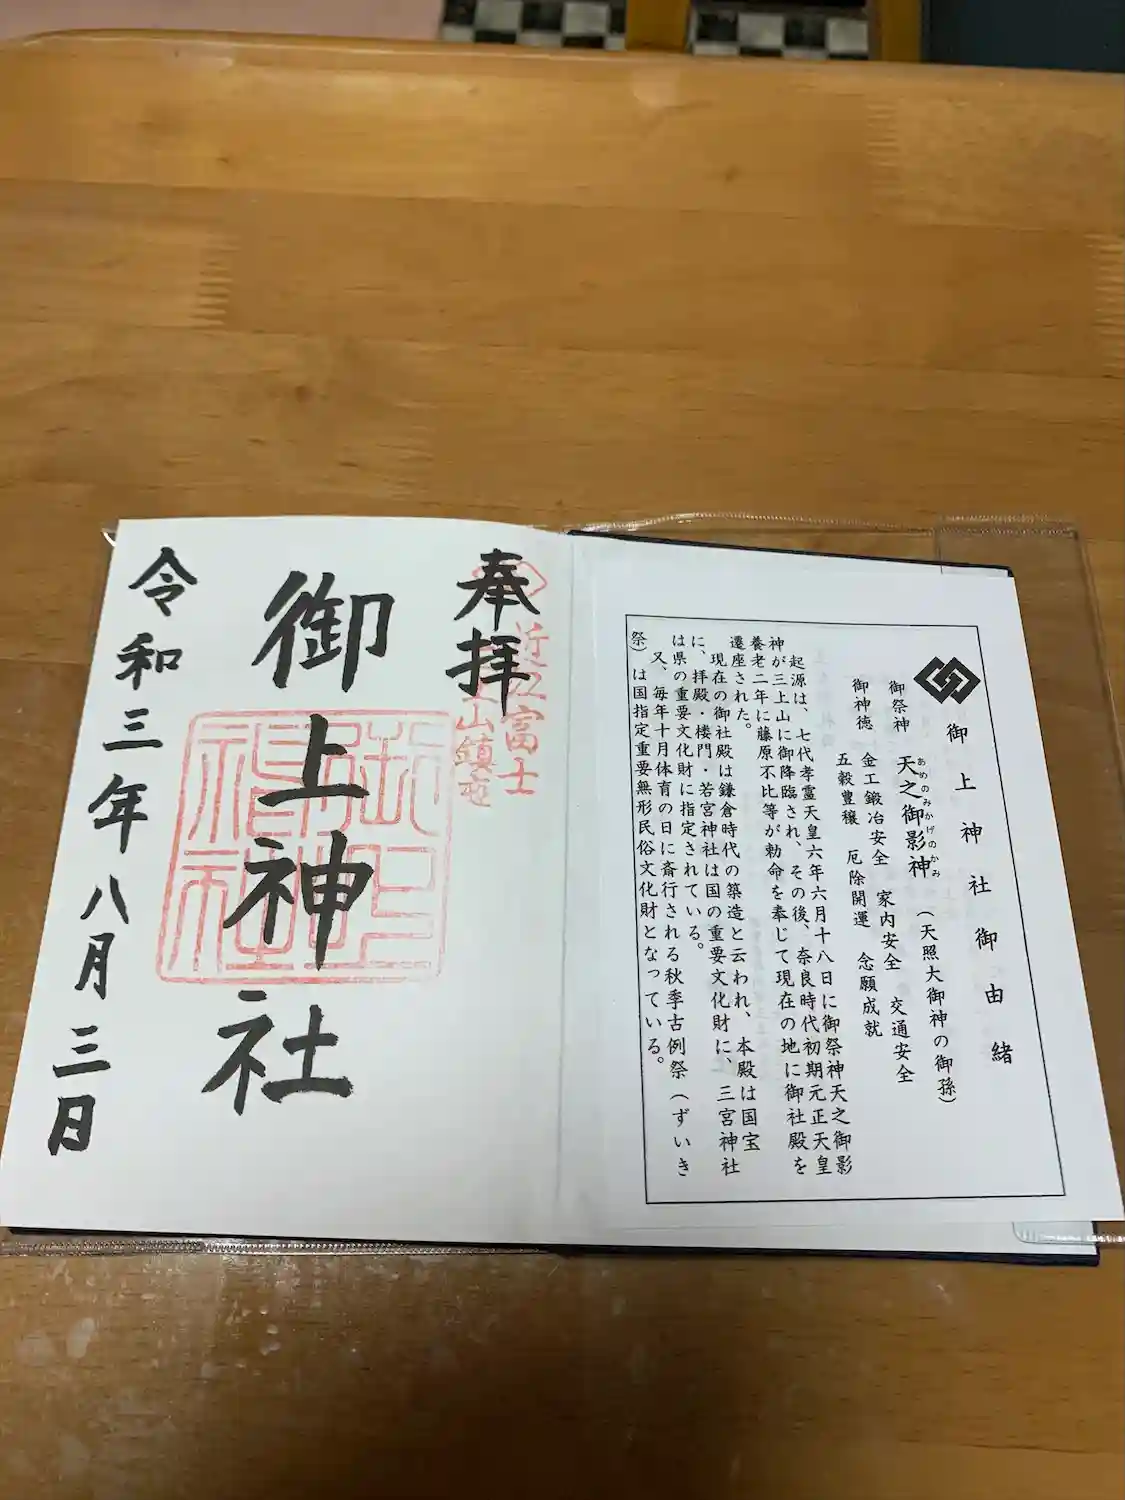 御上神社御由緒
御祭神 天之御影神（天照大御神の御孫）
あめのみかげのかみ
御神徳 金工鍛冶安全 家内安全 交通安全
五穀豊穣 厄除開運 念願成就
起源は、七代孝霊天皇六年六月十八日に御祭神天之御影
神が三上山に御降臨され、その後、奈良時代初期元正天皇
養老二年に藤原不比等が勅命を奉じて現在の地に御社殿を
遷座された。
現在の御社殿は鎌倉時代の築造と云われ、本殿は国宝
に、拝殿・楼門・若宮神社は国の重要文化財に、三宮神社
は県の重要文化財に指定されている。
又、毎年十月体育の日に斎行される秋季古例祭（ずいき
祭）は国指定重要無形民俗文化財となっている。
奉拝
近江富士
山鎮
御上神社
令和三年八月三日